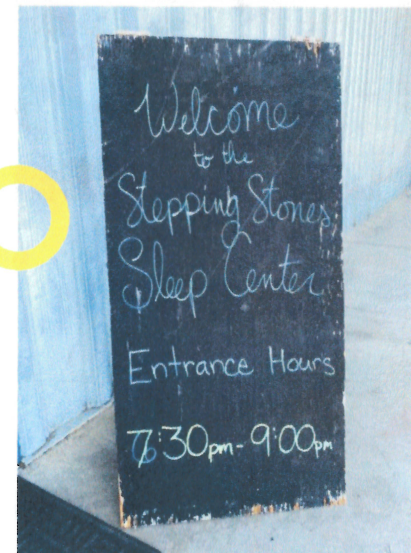 Welcome
to the
Stepping Stones
Sleep Center
Entrance Hours
:30pm - 9:00pm